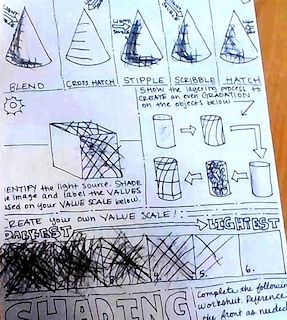 LIGHT
LIGHT
BLEND
CROSS HATCH
STIPPLE
SCRIBBLE
HATCH
SHOW the layering process to
CREATE an even GRADATION
on the objects below
IDENTIFY the light source. SHADE
image and label the VALUES
based on your VALUE SCALE below.
CREATE your own VALUE SCALE!:
DARKEST
LIGHTEST
4.
5.
6.
SHADING
Complete the following
worksheet. Reference
the front as needed